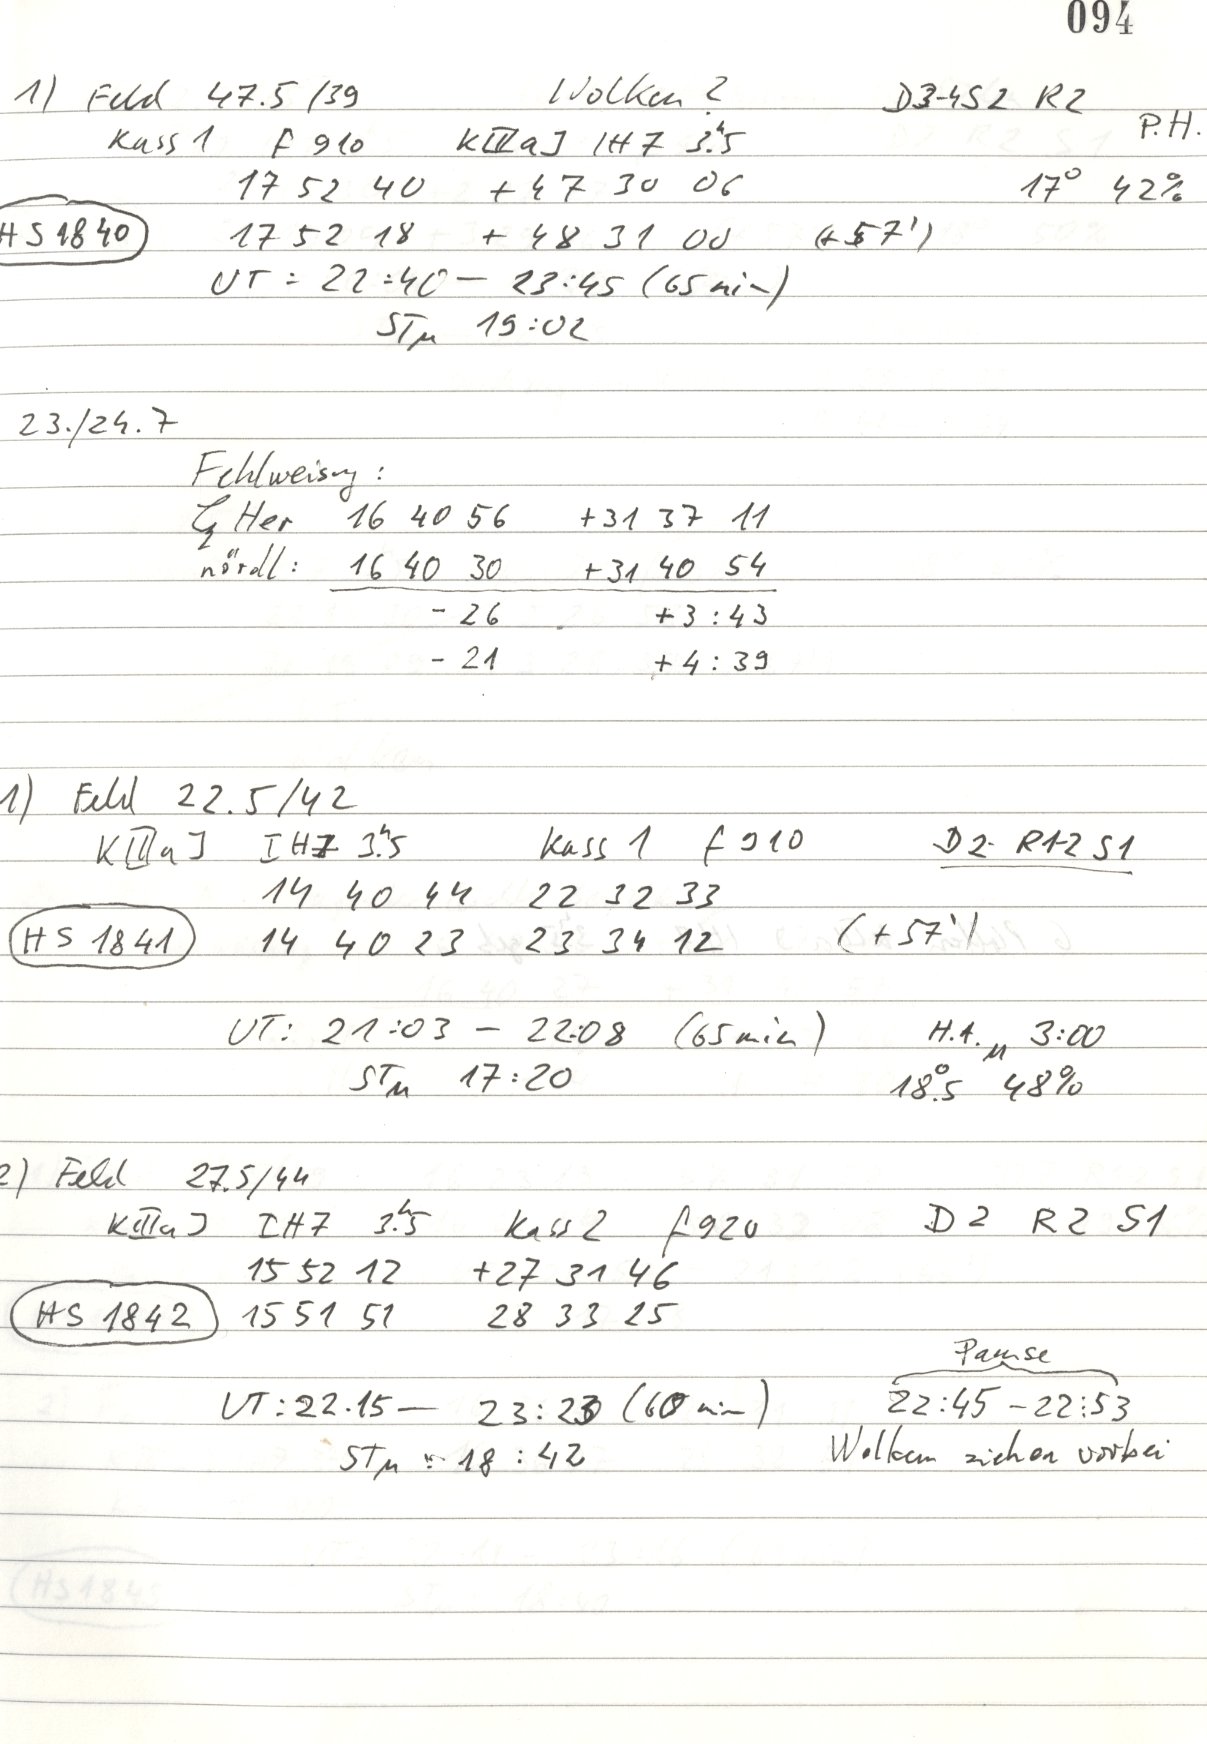 094
1) Feld 47.5/39 Wolken 2 D3-4 S2 R2
P.H.
Kass 1 f 910 K[IIa] IH7 3.ʰ5
17 52 40 +47 30 06 17° 42%
HS 1840 17 52 18 + 48 31 00 (+57')
UT: 22:40 – 23:45 (65 min)
STμ 19:02
23./24.7
Fehlweisung:
ζ Her 16 40 56 +31 37 11
nördl: 16 40 30 +31 40 54
- 26 +3:43
- 21 +4:39
1) Feld 22.5/42
K[IIa] IH7 3.ʰ5 Kass 1 f 910 D2 R1-2 S1
14 40 44 22 32 33
HS 1841 14 40 23 23 34 12 (+57')
UT: 21:03 – 22:08 (65 min) H.A.μ 3:00
STμ 17:20 18.°5 48%
2) Feld 27.5/44
K[IIa] IH7 3.ʰ5 Kass 2 f 920 D2 R2 S1
15 52 12 +27 31 46
HS 1842 15 51 51 28 33 25
Pause
UT: 22.15 – 23:23 (60 min) 22:45 – 22:53
STμ : 18:42 Wolken ziehen vorbei